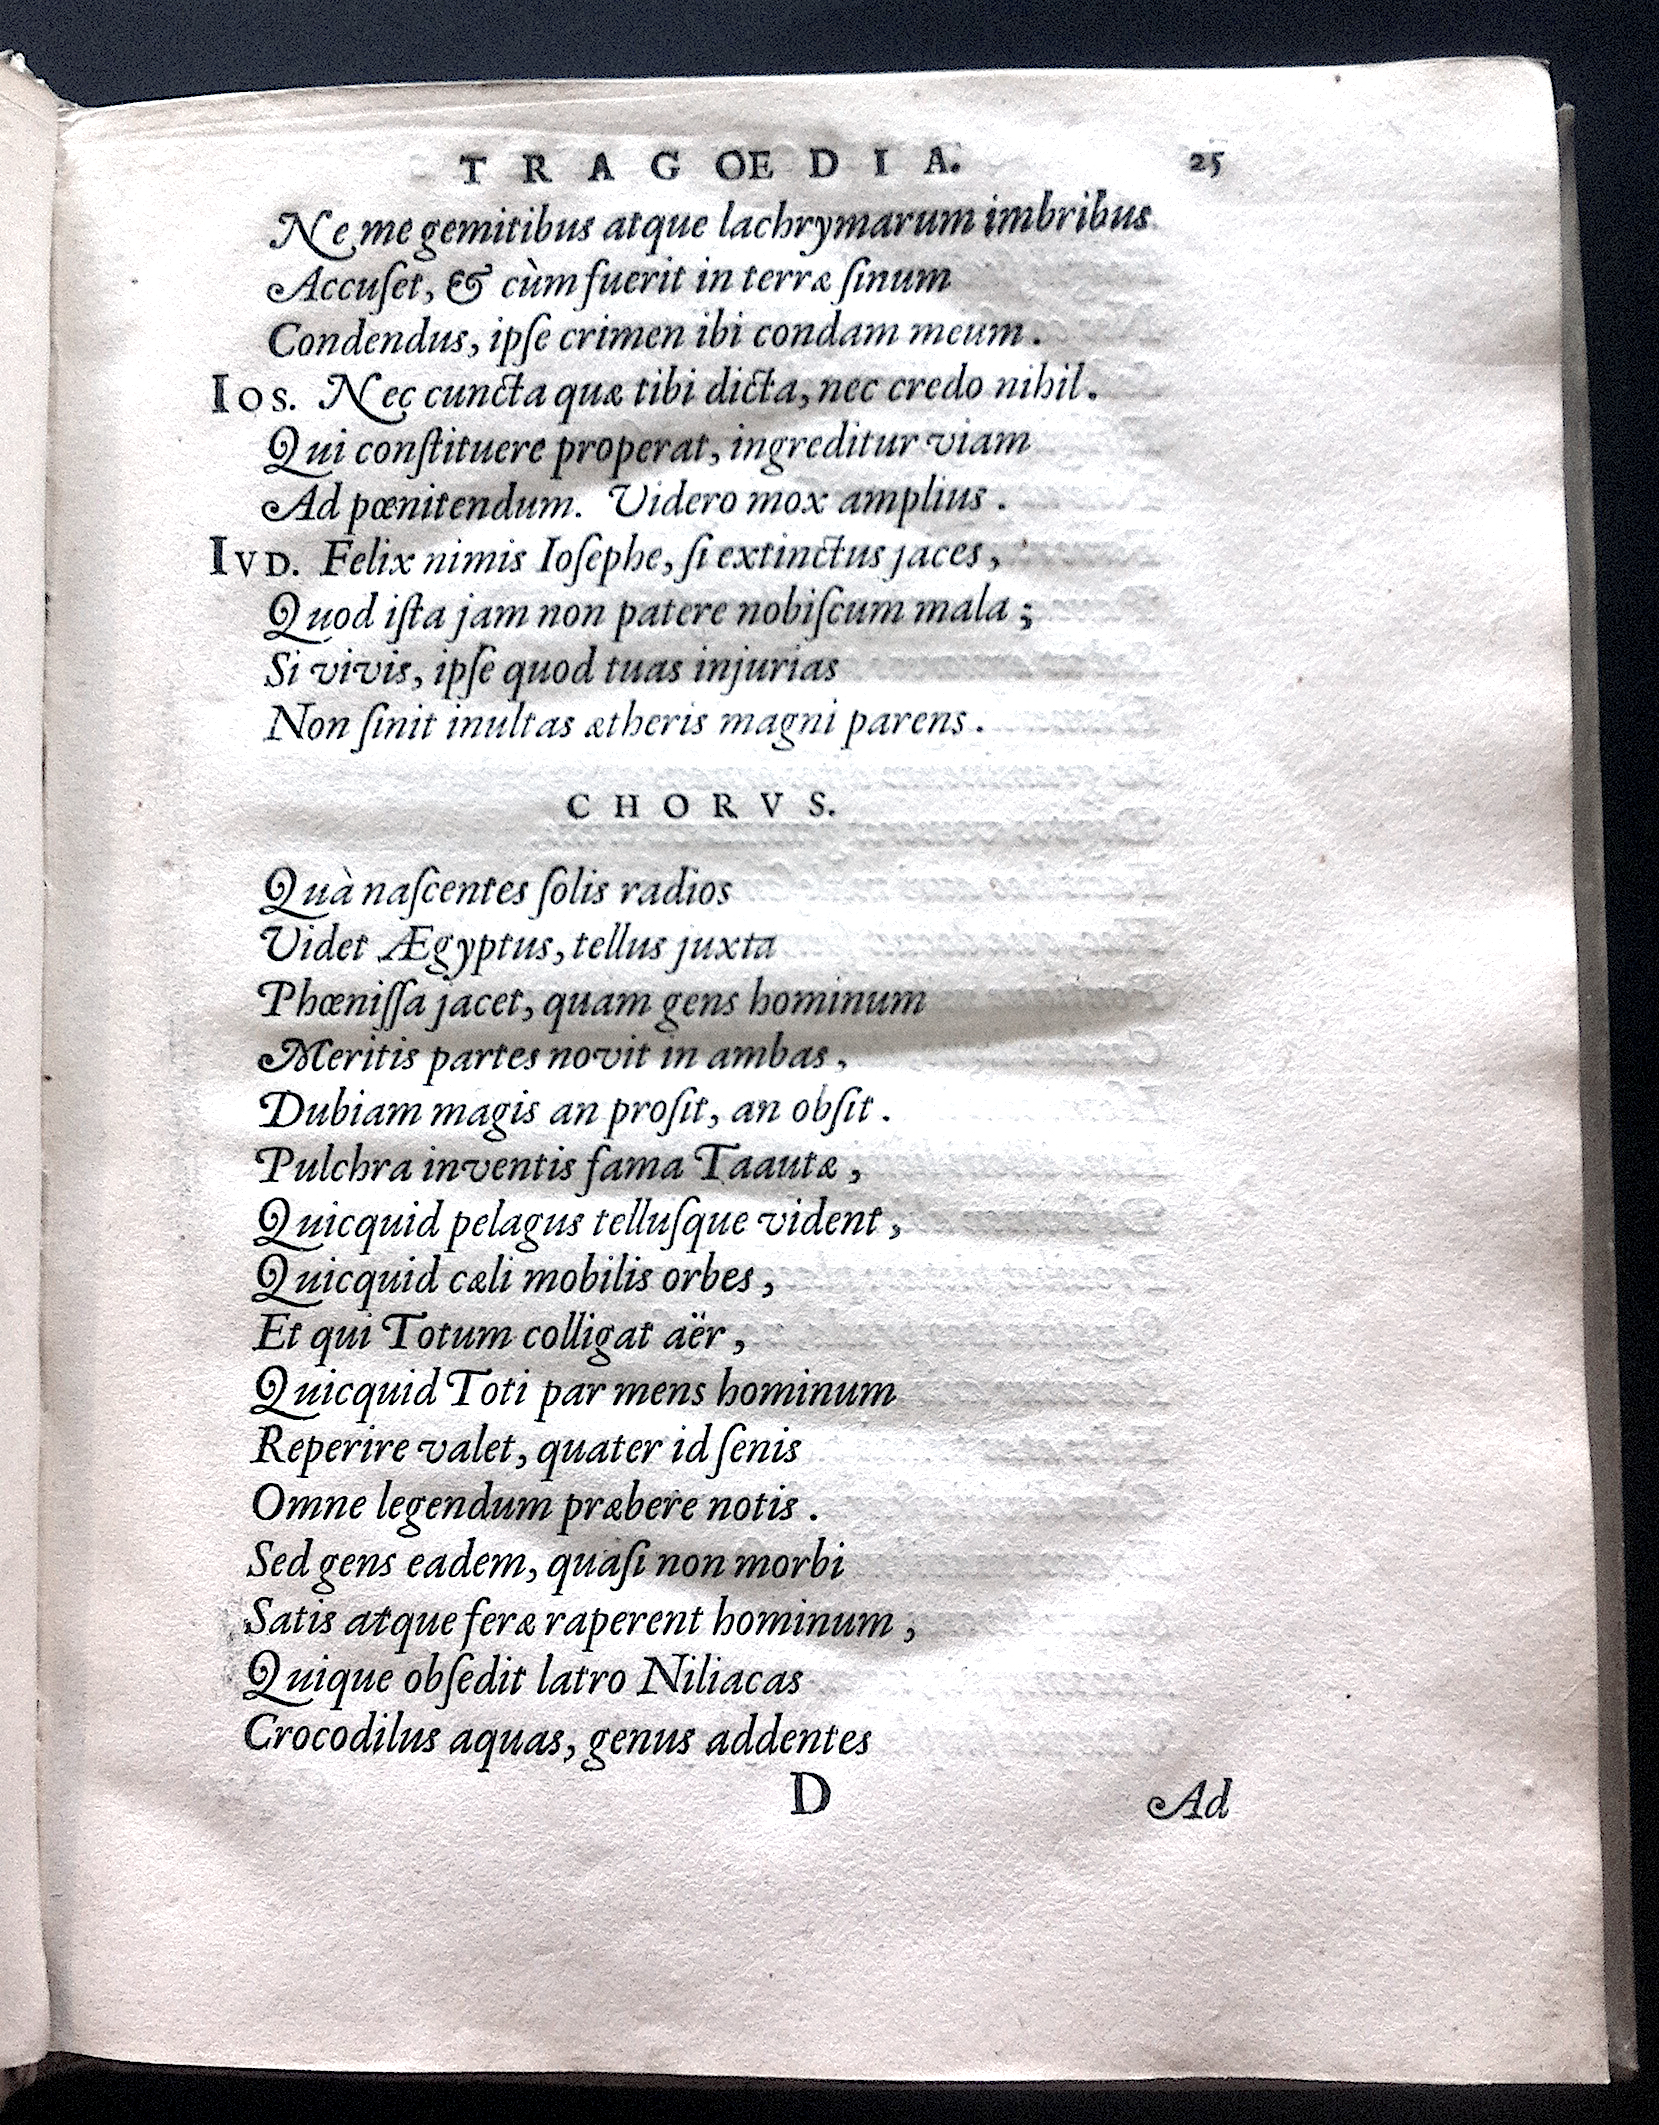 TRAGOEDIA. 25
Ne me gemitibus atque lachrymarum imbribus
Accuſet, & cùm fuerit in terræ ſinum
Condendus, ipſe crimen ibi condam meum.
Ios. Nec cuncta quæ tibi dicta, nec credo nihil.
Qui conſtituere properat, ingreditur viam
Ad pœnitendum. Videro mox amplius.
IVD. Felix nimis Ioſephe, ſi extinctus jaces,
Quod iſta jam non patere nobiſcum mala;
Si vivis, ipſe quod tuas injurias
Non ſinit inultas ætheris magni parens.
CHORVS.
Quà naſcentes ſolis radios
Videt Ægyptus, tellus juxta
Phœniſſa jacet, quam gens hominum
Meritis partes novit in ambas,
Dubiam magis an proſit, an obſit.
Pulchra inventis fama Taautæ,
Quicquid pelagus telluſque vident,
Quicquid cæli mobilis orbes,
Et qui Totum colligat aër,
Quicquid Toti par mens hominum
Reperire valet, quater id ſenis
Omne legendum præbere notis.
Sed gens eadem, quaſi non morbi
Satis atque feræ raperent hominum,
Quique obſedit latro Niliacas
Crocodilus aquas, genus addentes
D Ad